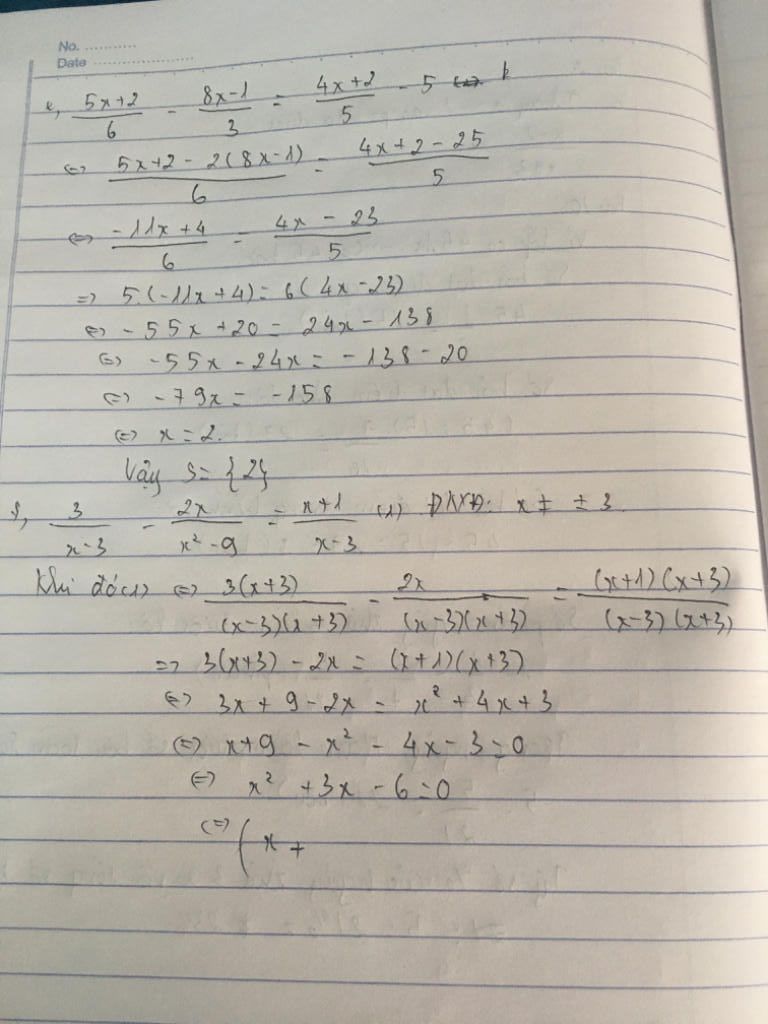 No. ............
Date ........................
e, (5x+2)/6 - (8x-1)/3 = (4x+2)/5 - 5
<=> (5x+2 - 2(8x-1))/6 = (4x+2-25)/5
<=> (-11x+4)/6 = (4x-23)/5
=> 5.(-11x+4) = 6(4x-23)
<=> -55x + 20 = 24x - 138
<=> -55x - 24x = -138 - 20
<=> -79x = -158
<=> x = 2.
Vậy S = {2}
f, 3/(x-3) - 2x/(x²-9) = (x+1)/(x-3) (1) ĐKXĐ: x ≠ ±3.
Khi đó (1) <=> 3(x+3)/((x-3)(x+3)) - 2x/((x-3)(x+3)) = (x+1)(x+3)/((x-3)(x+3))
=> 3(x+3) - 2x = (x+1)(x+3)
<=> 3x + 9 - 2x = x² + 4x + 3
<=> x + 9 - x² - 4x - 3 = 0
<=> x² + 3x - 6 = 0
<=> ( x +